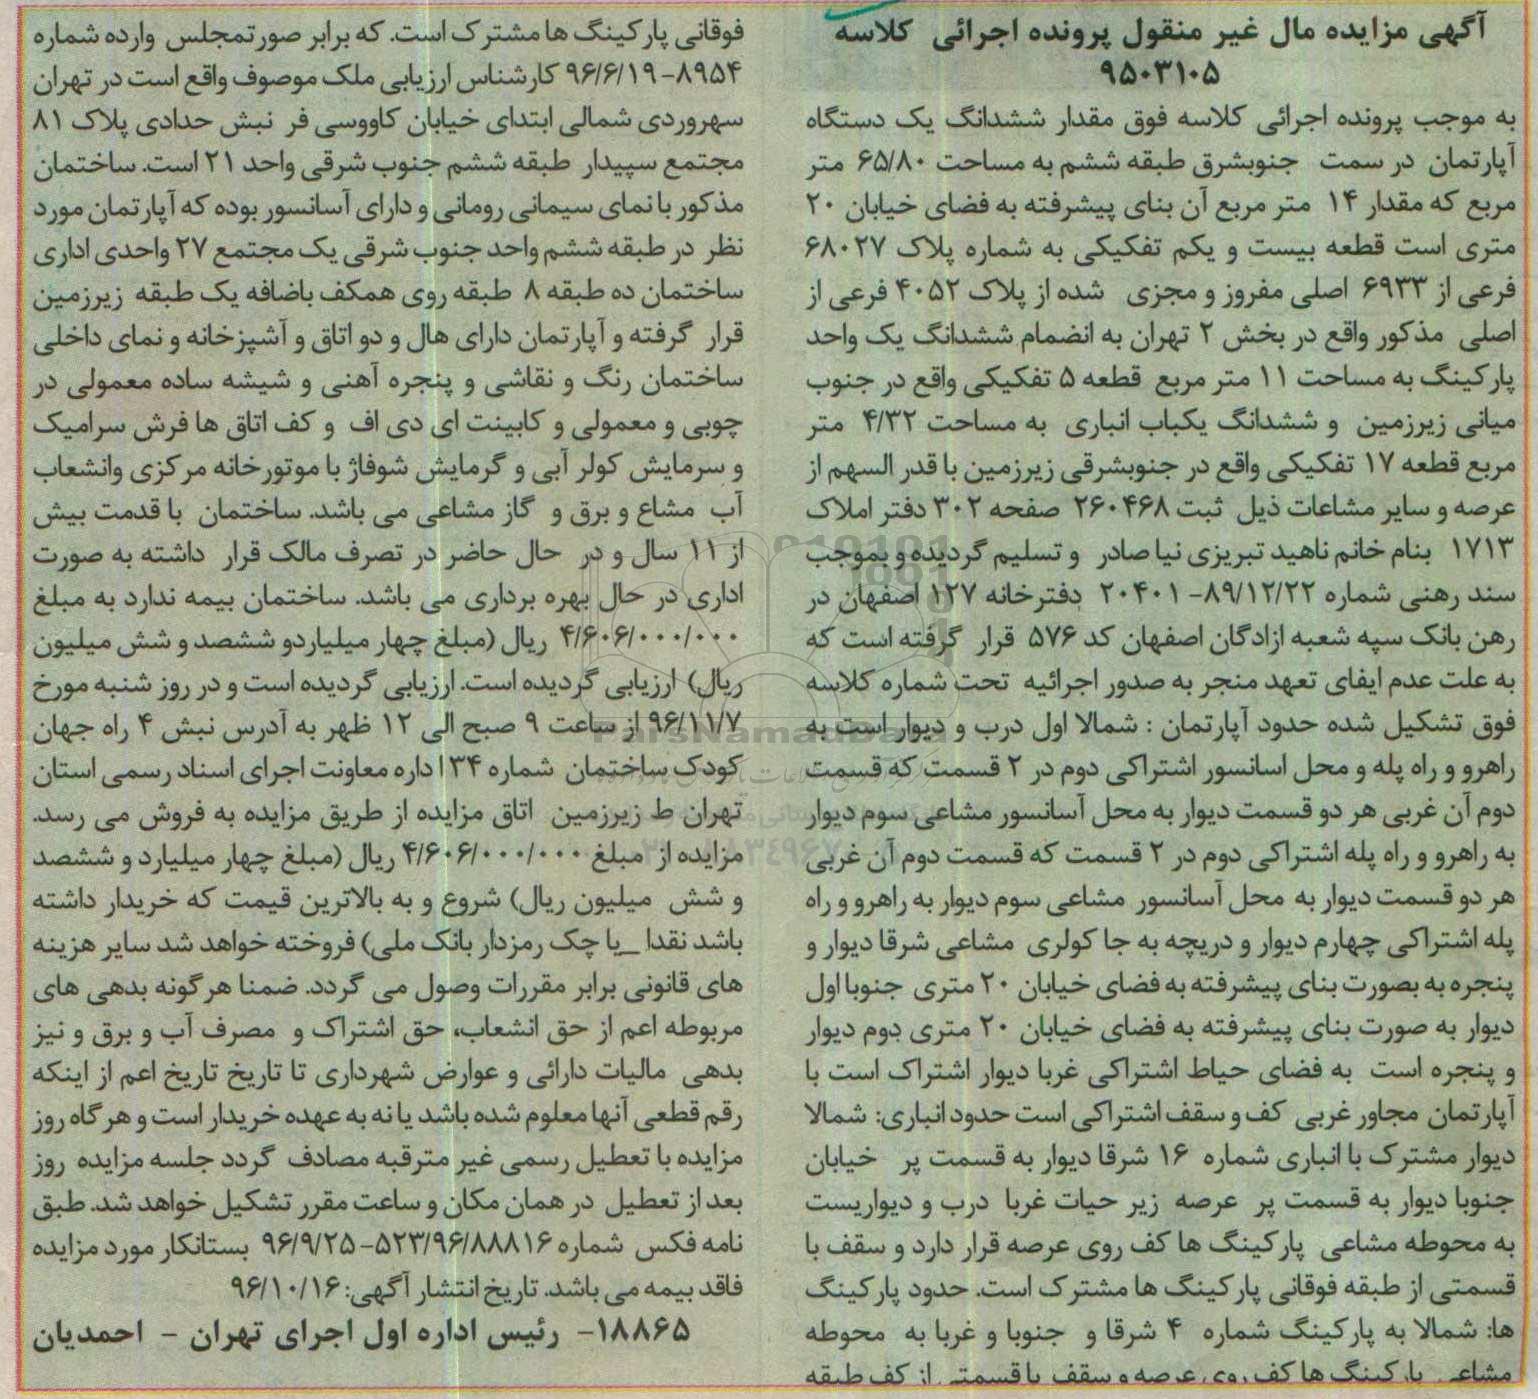 آگهی مزایده مال غیر منقول پرونده اجرائی کلاسه
۹۵۰۳۱۰۵
به موجب پرونده اجرائی کلاسه فوق مقدار ششدانگ یک دستگاه
آپارتمان در سمت جنوبشرق طبقه ششم به مساحت ۶۵/۸۰ متر
مربع که مقدار ۱۴ متر مربع آن بنای پیشرفته به فضای خیابان ۲۰
متری است قطعه بیست و یکم تفکیکی به شماره پلاک ۶۸۰۲۷
فرعی از ۶۹۳۳ اصلی مفروز و مجزی شده از پلاک ۴۰۵۲ فرعی از
اصلی مذکور واقع در بخش ۲ تهران به انضمام ششدانگ یک واحد
پارکینگ به مساحت ۱۱ متر مربع قطعه ۵ تفکیکی واقع در جنوب
میانی زیرزمین و ششدانگ یکباب انباری به مساحت ۴/۳۲ متر
مربع قطعه ۱۷ تفکیکی واقع در جنوبشرقی زیرزمین با قدر السهم از
عرصه و سایر مشاعات ذیل ثبت ۲۶۰۴۶۸ صفحه ۳۰۲ دفتر املاک
۱۷۱۳ بنام خانم ناهید تبریزی نیا صادر و تسلیم گردیده و بموجب
سند رهنی شماره ۸۹/۱۲/۲۲- ۲۰۴۰۱ دفترخانه ۱۲۷ اصفهان در
رهن بانک سپه شعبه ازادگان اصفهان کد ۵۷۶ قرار گرفته است که
به علت عدم ایفای تعهد منجر به صدور اجرائیه تحت شماره کلاسه
فوق تشکیل شده حدود آپارتمان : شمالا اول درب و دیوار است به
راهرو و راه پله و محل اسانسور اشتراکی دوم در ۲ قسمت که قسمت
دوم آن غربی هر دو قسمت دیوار به محل آسانسور مشاعی سوم دیوار
به راهرو و راه پله اشتراکی دوم در ۲ قسمت که قسمت دوم آن غربی
هر دو قسمت دیوار به محل آسانسور مشاعی سوم دیوار به راهرو و راه
پله اشتراکی چهارم دیوار و دریچه به جا کولری مشاعی شرقا دیوار و
پنجره به بصورت بنای پیشرفته به فضای خیابان ۲۰ متری جنوبا اول
دیوار به صورت بنای پیشرفته به فضای خیابان ۲۰ متری دوم دیوار
و پنجره است به فضای حیاط اشتراکی غربا دیوار اشتراک است با
آپارتمان مجاور غربی کف و سقف اشتراکی است حدود انباری: شمالا
دیوار مشترک با انباری شماره ۱۶ شرقا دیوار به قسمت پر خیابان
جنوبا دیوار به قسمت پر عرصه زیر حیات غربا درب و دیواریست
به محوطه مشاعی پارکینگ ها کف روی عرصه قرار دارد و سقف با
قسمتی از طبقه فوقانی پارکینگ ها مشترک است. حدود پارکینگ
ها: شمالا به پارکینگ شماره ۴ شرقا و جنوبا و غربا به محوطه
مشاعی پارکینگ ها کف روی عرصه و سقف با قسمتی از کف طبقه
فوقانی پارکینگ ها مشترک است. که برابر صورتمجلس وارده شماره
۸۹۵۴-۹۶/۶/۱۹ کارشناس ارزیابی ملک موصوف واقع است در تهران
سهروردی شمالی ابتدای خیابان کاووسی فر نبش حدادی پلاک ۸۱
مجتمع سپیدار طبقه ششم جنوب شرقی واحد ۲۱ است. ساختمان
مذکور با نمای سیمانی رومانی و دارای آسانسور بوده که آپارتمان مورد
نظر در طبقه ششم واحد جنوب شرقی یک مجتمع ۲۷ واحدی اداری
ساختمان ده طبقه ۸ طبقه روی همکف باضافه یک طبقه زیرزمین
قرار گرفته و آپارتمان دارای هال و دو اتاق و آشپزخانه و نمای داخلی
ساختمان رنگ و نقاشی و پنجره آهنی و شیشه ساده معمولی در
چوبی و معمولی و کابینت ای دی اف و کف اتاق ها فرش سرامیک
و سرمایش کولر آبی و گرمایش شوفاژ با موتورخانه مرکزی وانشعاب
آب مشاع و برق و گاز مشاعی می باشد. ساختمان با قدمت بیش
از ۱۱ سال و در حال حاضر در تصرف مالک قرار داشته به صورت
اداری در حال بهره برداری می باشد. ساختمان بیمه ندارد به مبلغ
۴/۶۰۶/۰۰۰/۰۰۰ ریال (مبلغ چهار میلیاردو ششصد و شش میلیون
ریال) ارزیابی گردیده است. ارزیابی گردیده است و در روز شنبه مورخ
۹۶/۱۱/۷ از ساعت ۹ صبح الی ۱۲ ظهر به آدرس نبش ۴ راه جهان
کودک ساختمان شماره ۱۳۴ داره معاونت اجرای اسناد رسمی استان
تهران ط زیرزمین اتاق مزایده از طریق مزایده به فروش می رسد.
مزایده از مبلغ ۴/۶۰۶/۰۰۰/۰۰۰ ریال (مبلغ چهار میلیارد و ششصد
و شش میلیون ریال) شروع و به بالاترین قیمت که خریدار داشته
باشد نقدا _یا چک رمزدار بانک ملی) فروخته خواهد شد سایر هزینه
های قانونی برابر مقررات وصول می گردد. ضمنا هرگونه بدهی های
مربوطه اعم از حق انشعاب، حق اشتراک و مصرف آب و برق و نیز
بدهی مالیات دارائی و عوارض شهرداری تا تاریخ تاریخ اعم از اینکه
رقم قطعی آنها معلوم شده باشد یا نه به عهده خریدار است و هر گاه روز
مزایده با تعطیل رسمی غیر مترقبه مصادف گردد جلسه مزایده روز
بعد از تعطیل در همان مکان و ساعت مقرر تشکیل خواهد شد. طبق
نامه فکس شماره ۵۲۳/۹۶/۸۸۸۱۶-۹۶/۹/۲۵ بستانکار مورد مزایده
فاقد بیمه می باشد. تاریخ انتشار آگهی: ۹۶/۱۰/۱۶
۱۸۸۶۵- رئیس اداره اول اجرای تهران - احمدیان
ParsNamadData